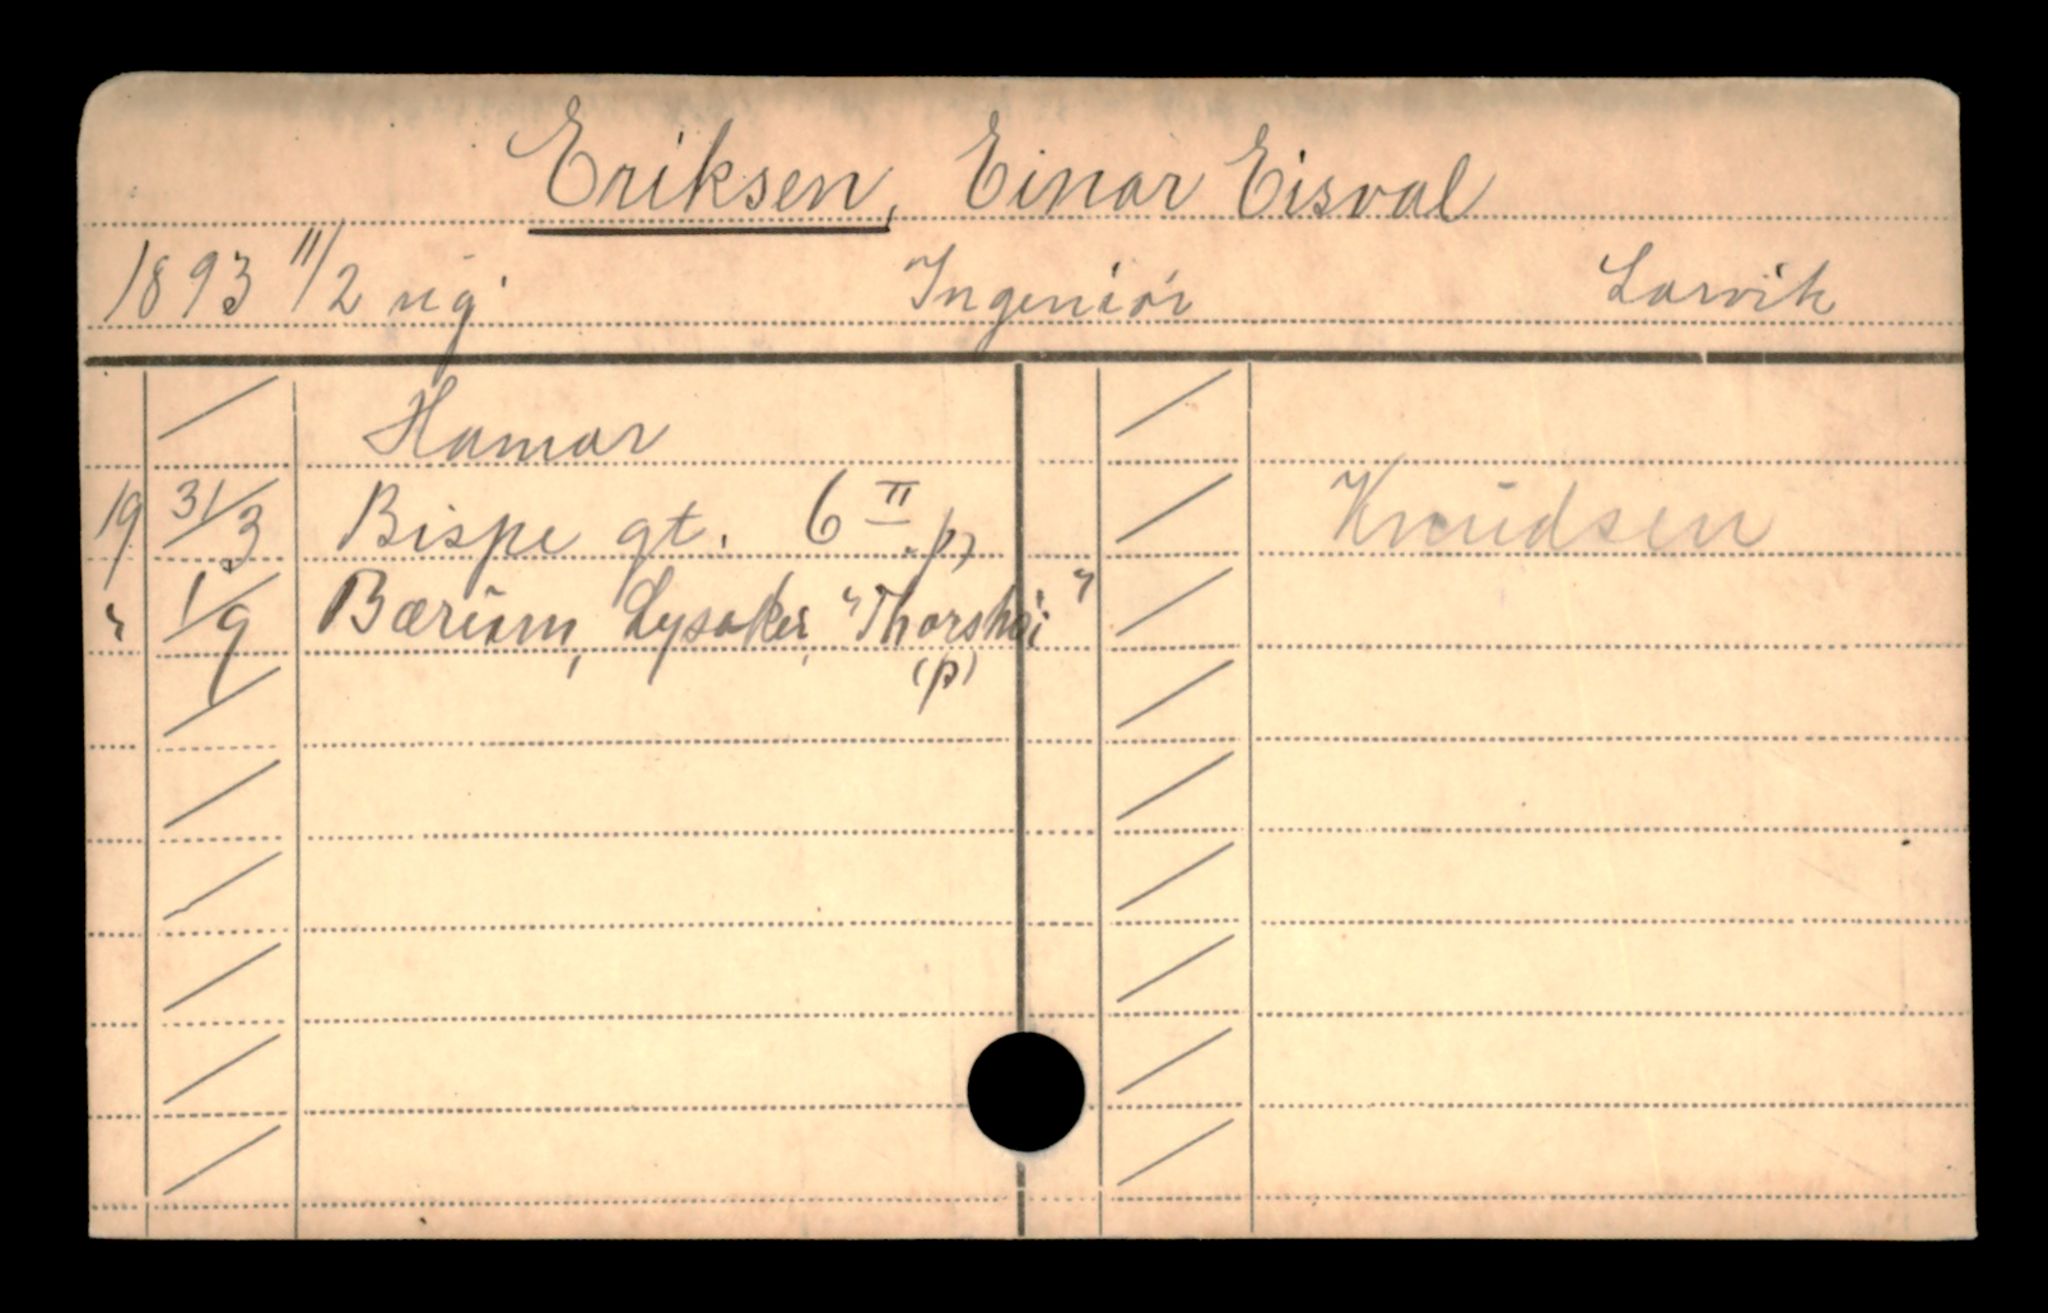 Eriksen, Einar Eisval
1893 11/2 ug. Ingeniör Larvik
Hamar
19 31/3 Bispe gt. 6 II (p) Knudsen
" 1/9 Bærum, Lysaker, "Thorshøi"
(p)